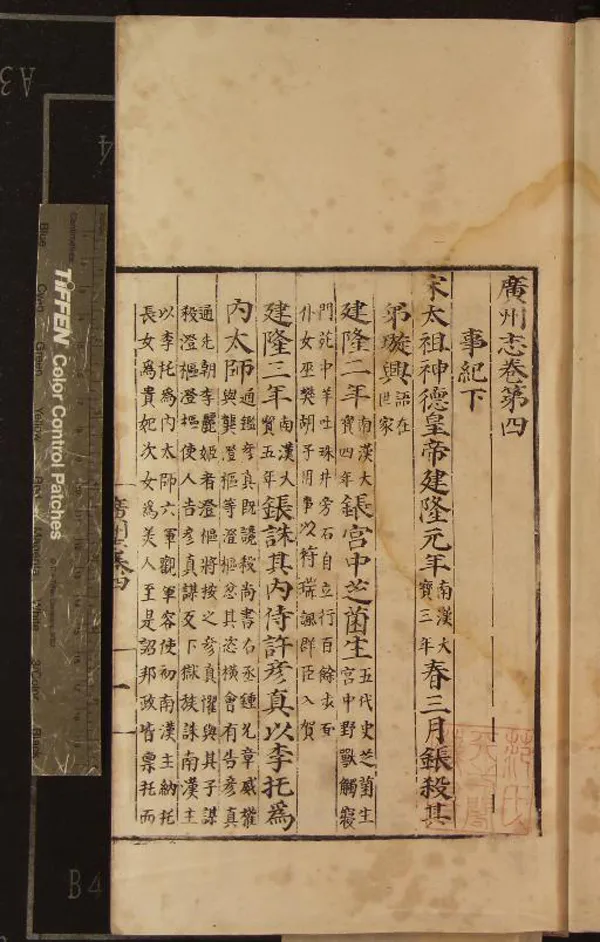 廣州志卷第四
事紀下
宋太祖神德皇帝建隆元年南漢大寶三年春三月鋹殺其
弟璇興語在世家
建隆二年南漢大寶四年鋹宮中芝菌生五代史芝菌生宮中野獸觸寢
門苑中羊吐珠井旁石自立行百餘步而
仆女巫樊胡子用事以符瑞諷群臣入賀
建隆三年南漢大寶五年鋹誅其內侍許彥真以李托為
內太師通鑑彥真既譖殺尚書右丞鍾允章威權與龔澄樞等澄樞忿其恣橫會有告彥真
通先朝李麗姬者澄樞將按之彥真懼與其子謀
殺澄樞澄樞使人告彥真謀反下獄族誅南漢主
以李托為內太師六軍觀軍容使初南漢主納托
長女為貴妃次女為美人至是詔邦政皆稟托而
廣州志卷四
一
TIFFEN Color Control Patches
Blue
Cyan
Green
Yellow
Red
Magenta
White
3/Color
Black
A3
4
B4